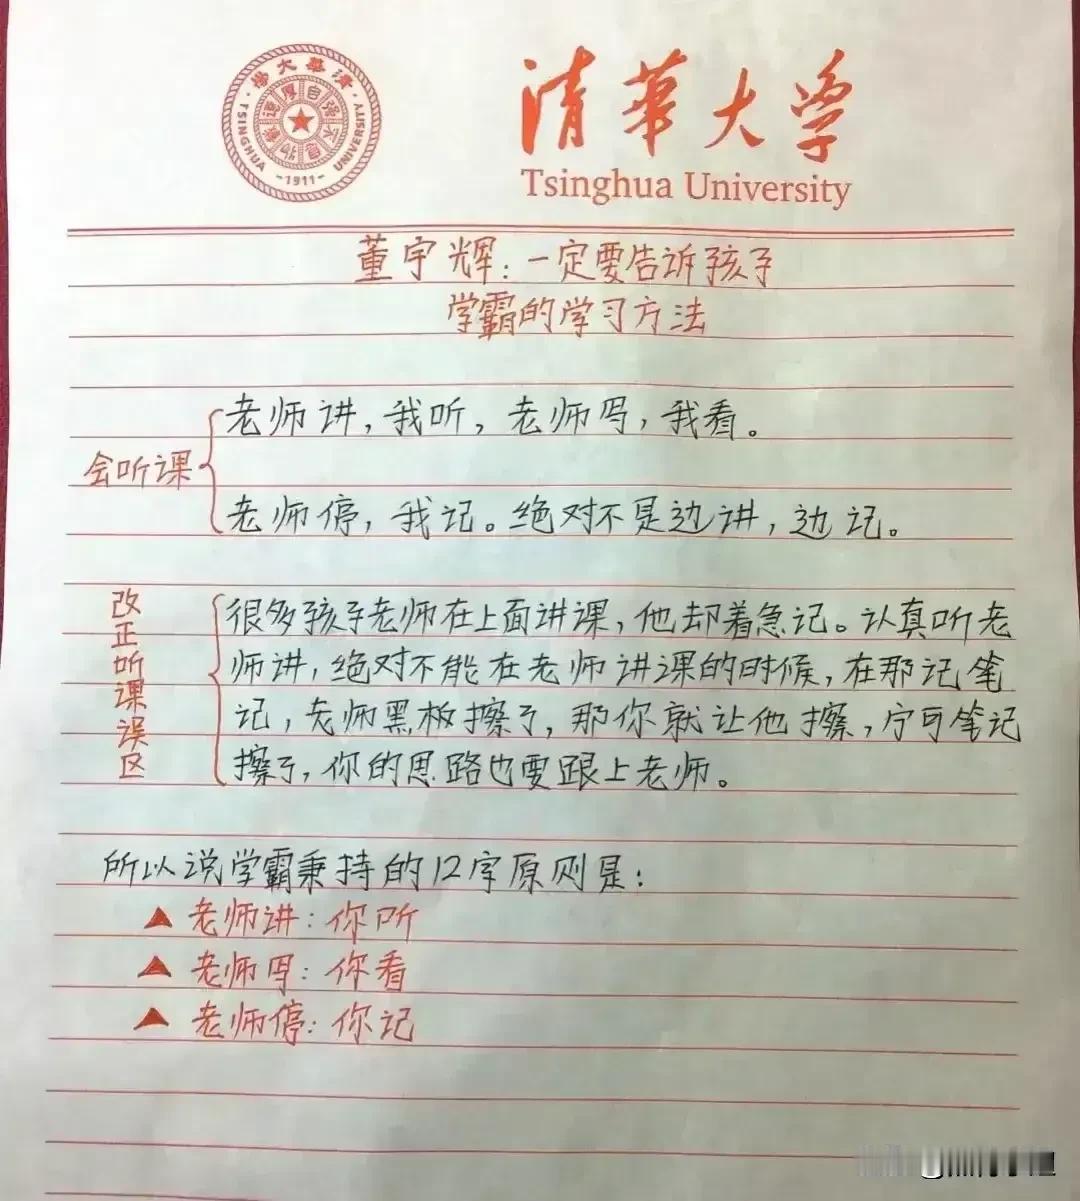 清華大學
TSINGHUA UNIVERSITY
自强不息
厚德載物
-1911-
清華大学
Tsinghua University
董宇辉:一定要告诉孩子
学霸的学习方法
会听课
老师讲,我听,老师写,我看。
老师停,我记。绝对不是边讲,边记。
改正听课误区
很多孩子老师在上面讲课,他却着急记。认真听老
师讲,绝对不能在老师讲课的时候,在那记笔
记,老师黑板擦了,那你就让他擦,宁可笔记
擦了,你的思路也要跟上老师。
所以说学霸秉持的12字原则是:
▲老师讲:你听
▲老师写:你看
▲老师停:你记